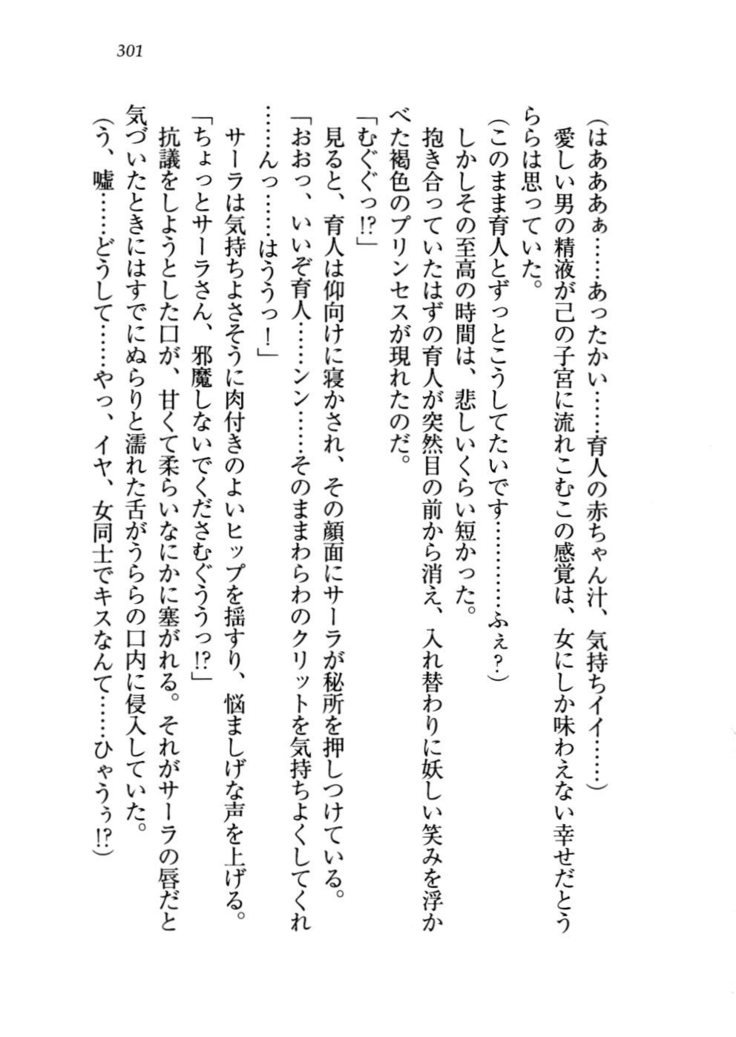 301
(はあああぁ……あったかい……育人の赤ちゃん汁、気持ちイイ……)
愛しい男の精液が己の子宮に流れこむこの感覚は、女にしか味わえない幸せだとう
ららは思っていた。
(このまま育人とずっとこうしてたいです…………ふぇ?)
しかしその至高の時間は、悲しいくらい短かった。
抱き合っていたはずの育人が突然目の前から消え、入れ替わりに妖しい笑みを浮か
べた褐色のプリンセスが現れたのだ。
「むぐぐっ!?」
見ると、育人は仰向けに寝かされ、その顔面にサーラが秘所を押しつけている。
「おおっ、いいぞ育人……ンン……そのままわらわのクリットを気持ちよくしてくれ
……んっ……はううっ!」
サーラは気持ちよさそうに肉付きのよいヒップを揺すり、悩ましげな声を上げる。
「ちょっとサーラさん、邪魔しないでくださむぐううっ!?」
抗議をしようとした口が、甘くて柔らいなにかに塞がれる。それがサーラの唇だと
気づいたときにはすでにぬらりと濡れた舌がうららの口内に侵入していた。
(う、嘘……どうして……やっ、イヤ、女同士でキスなんて……ひゃうぅ!?)